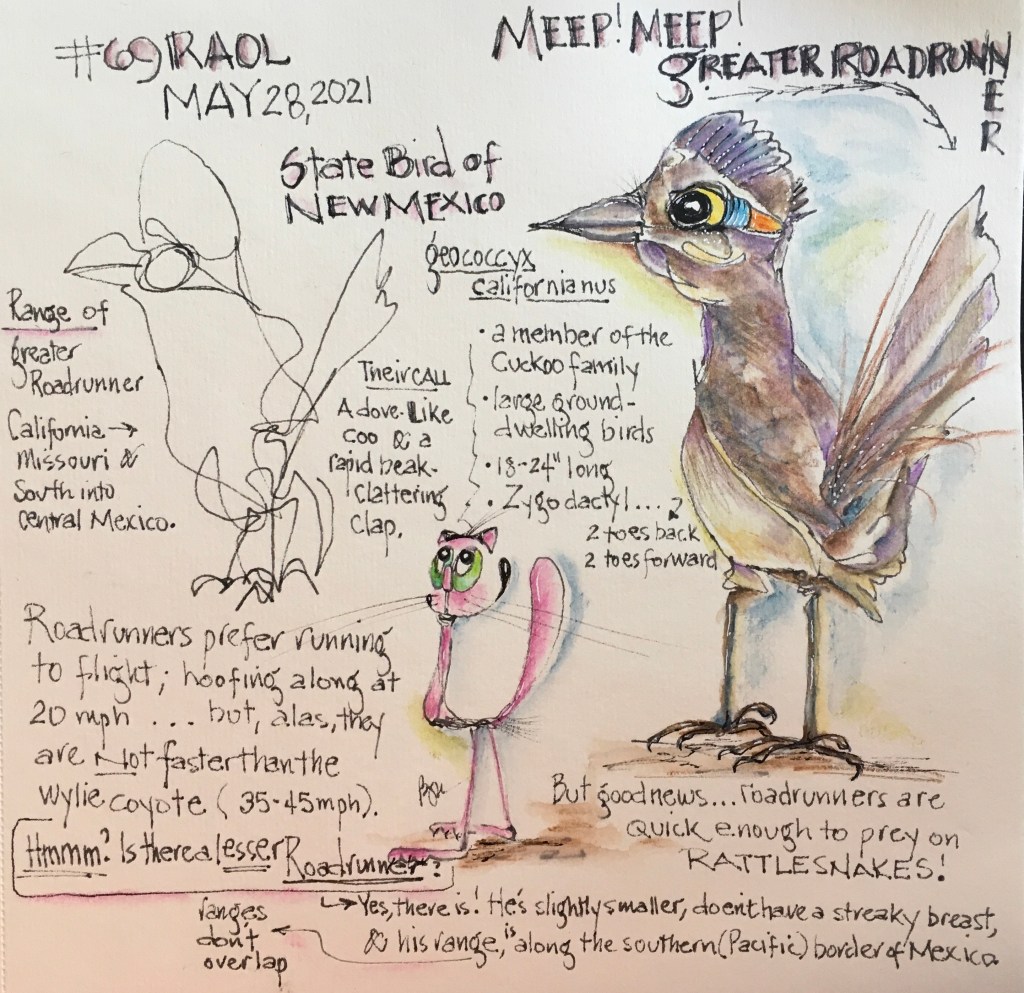 #69 RAOL
MAY 28, 2021
MEEP! MEEP!
greater Roadrunner
State Bird of
New Mexico
geococcyx
californianus
• a member of the
Cuckoo family
• large ground-
dwelling birds
• 18-24" long
• Zygodactyl...
2 toes back
2 toes forward
Range of
greater
Roadrunner
California →
Missouri &
South into
Central Mexico.
Their CALL
A dove-Like
coo & a
rapid beak-
Clattering
Clap.
Roadrunners prefer running
to flight; hoofing along at
20 mph ... but, alas, they
are Not faster than the
Wylie coyote (35-45mph).
Hmmm? Is there a lesser Roadrunner?
But good news... roadrunners are
Quick enough to prey on
RATTLESNAKES!
↳ Yes, there is! He's slightly smaller, doent have a streaky breast,
& his range, is along the southern (Pacific) border of Mexico.
ranges
don't
overlap